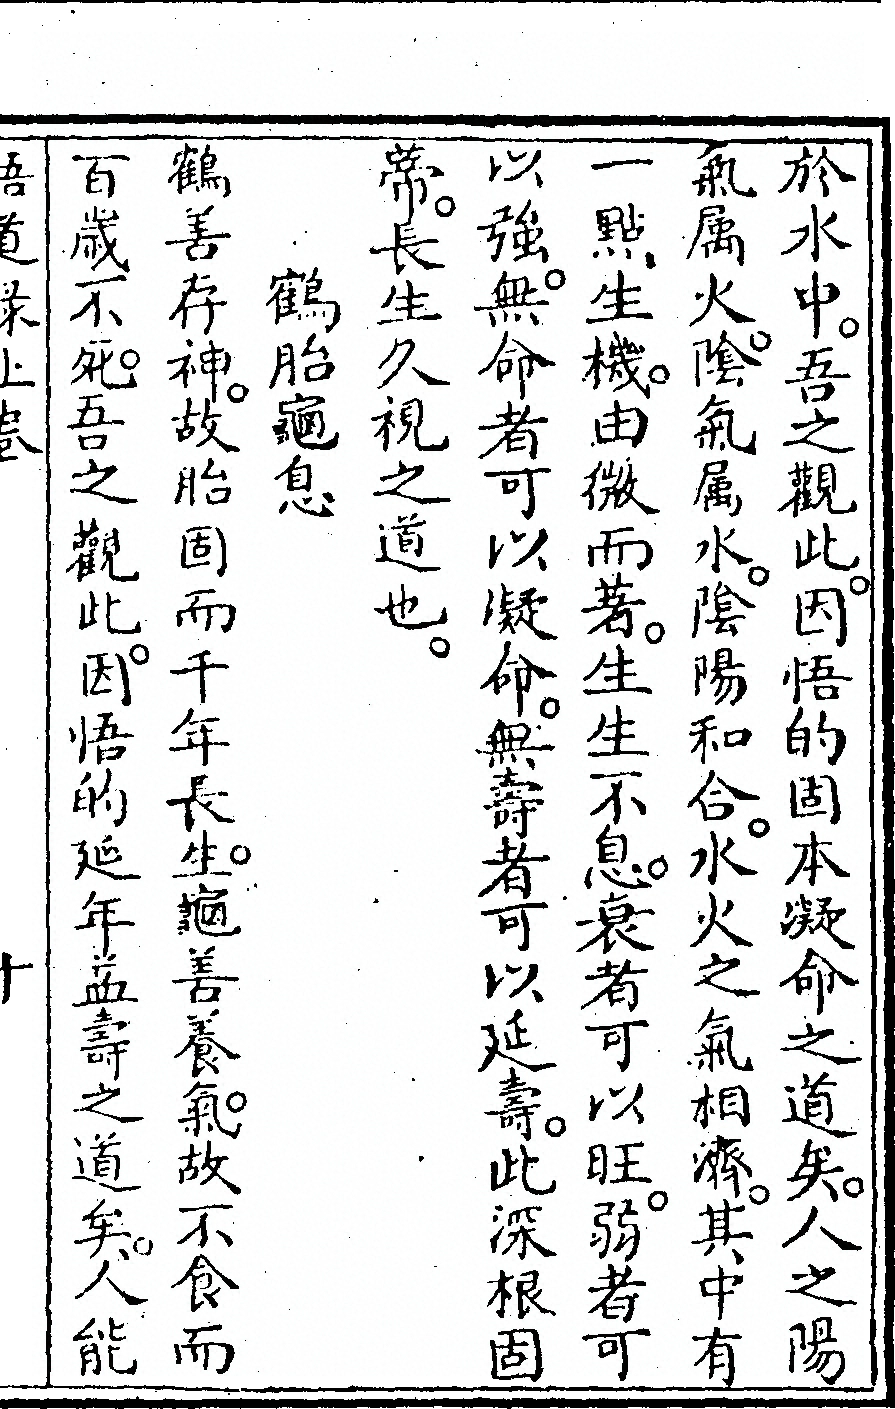 於水中。吾之觀此。因悟的固本凝命之道矣。人之陽
氣属火。陰氣属水。陰陽和合。水火之氣相濟。其中有
一點生機。由微而著。生生不息。衰者可以旺。弱者可
以強。無命者可以凝命。無壽者可以延壽。此深根固
蒂。長生久視之道也。
鶴胎龜息
鶴善存神。故胎固而千年長生。龜善養氣。故不食而
百歲不死。吾之觀此。因悟的延年益壽之道矣。人能
悟道录上卷 十